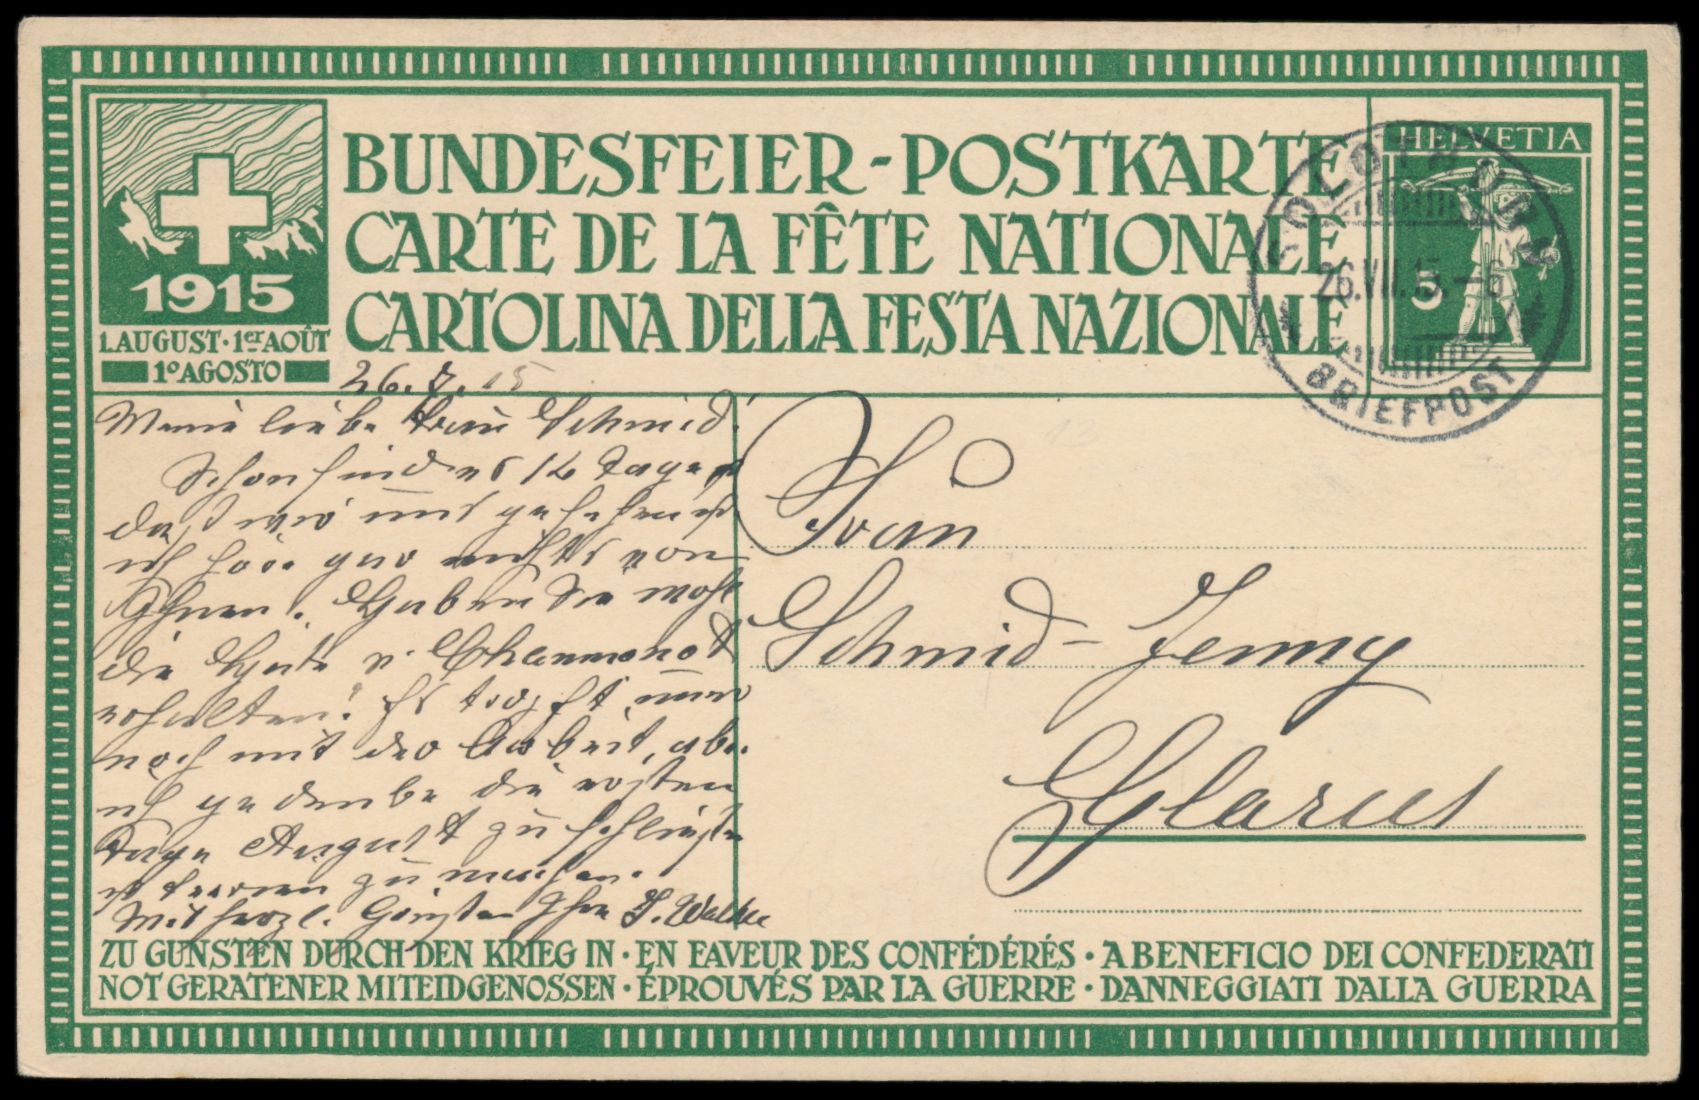 BUNDESFEIER-POSTKARTE
CARTE DE LA FÊTE NATIONALE
CARTOLINA DELLA FESTA NAZIONALE
1915
1.AUGUST·1er AOÛT
1º AGOSTO
HELVETIA
5
SOLOTHURN
26.VII.15.-6
BRIEFPOST
26.7.15
Meine liebe Frau Schmid!
Schon sind es 14 Tage
daß wir uns gesehen
ich höre gar nichts von
Ihnen. Haben Sie wohl
die Hüte v. Chaumonod
erhalten? Es tropft nur
noch mit der Arbeit, aber
ich gedenke die ersten
Tage August zu schließen
u. Ferien zu machen.
Mit herzl. Grüßen Ihre
Frau
Schmid-Jenny
Glarus
ZU GUNSTEN DURCH DEN KRIEG IN · EN FAVEUR DES CONFÉDÉRÉS · A BENEFICIO DEI CONFEDERATI
NOT GERATENER MITEIDGENOSSEN · ÉPROUVÉS PAR LA GUERRE · DANNEGGIATI DALLA GUERRA